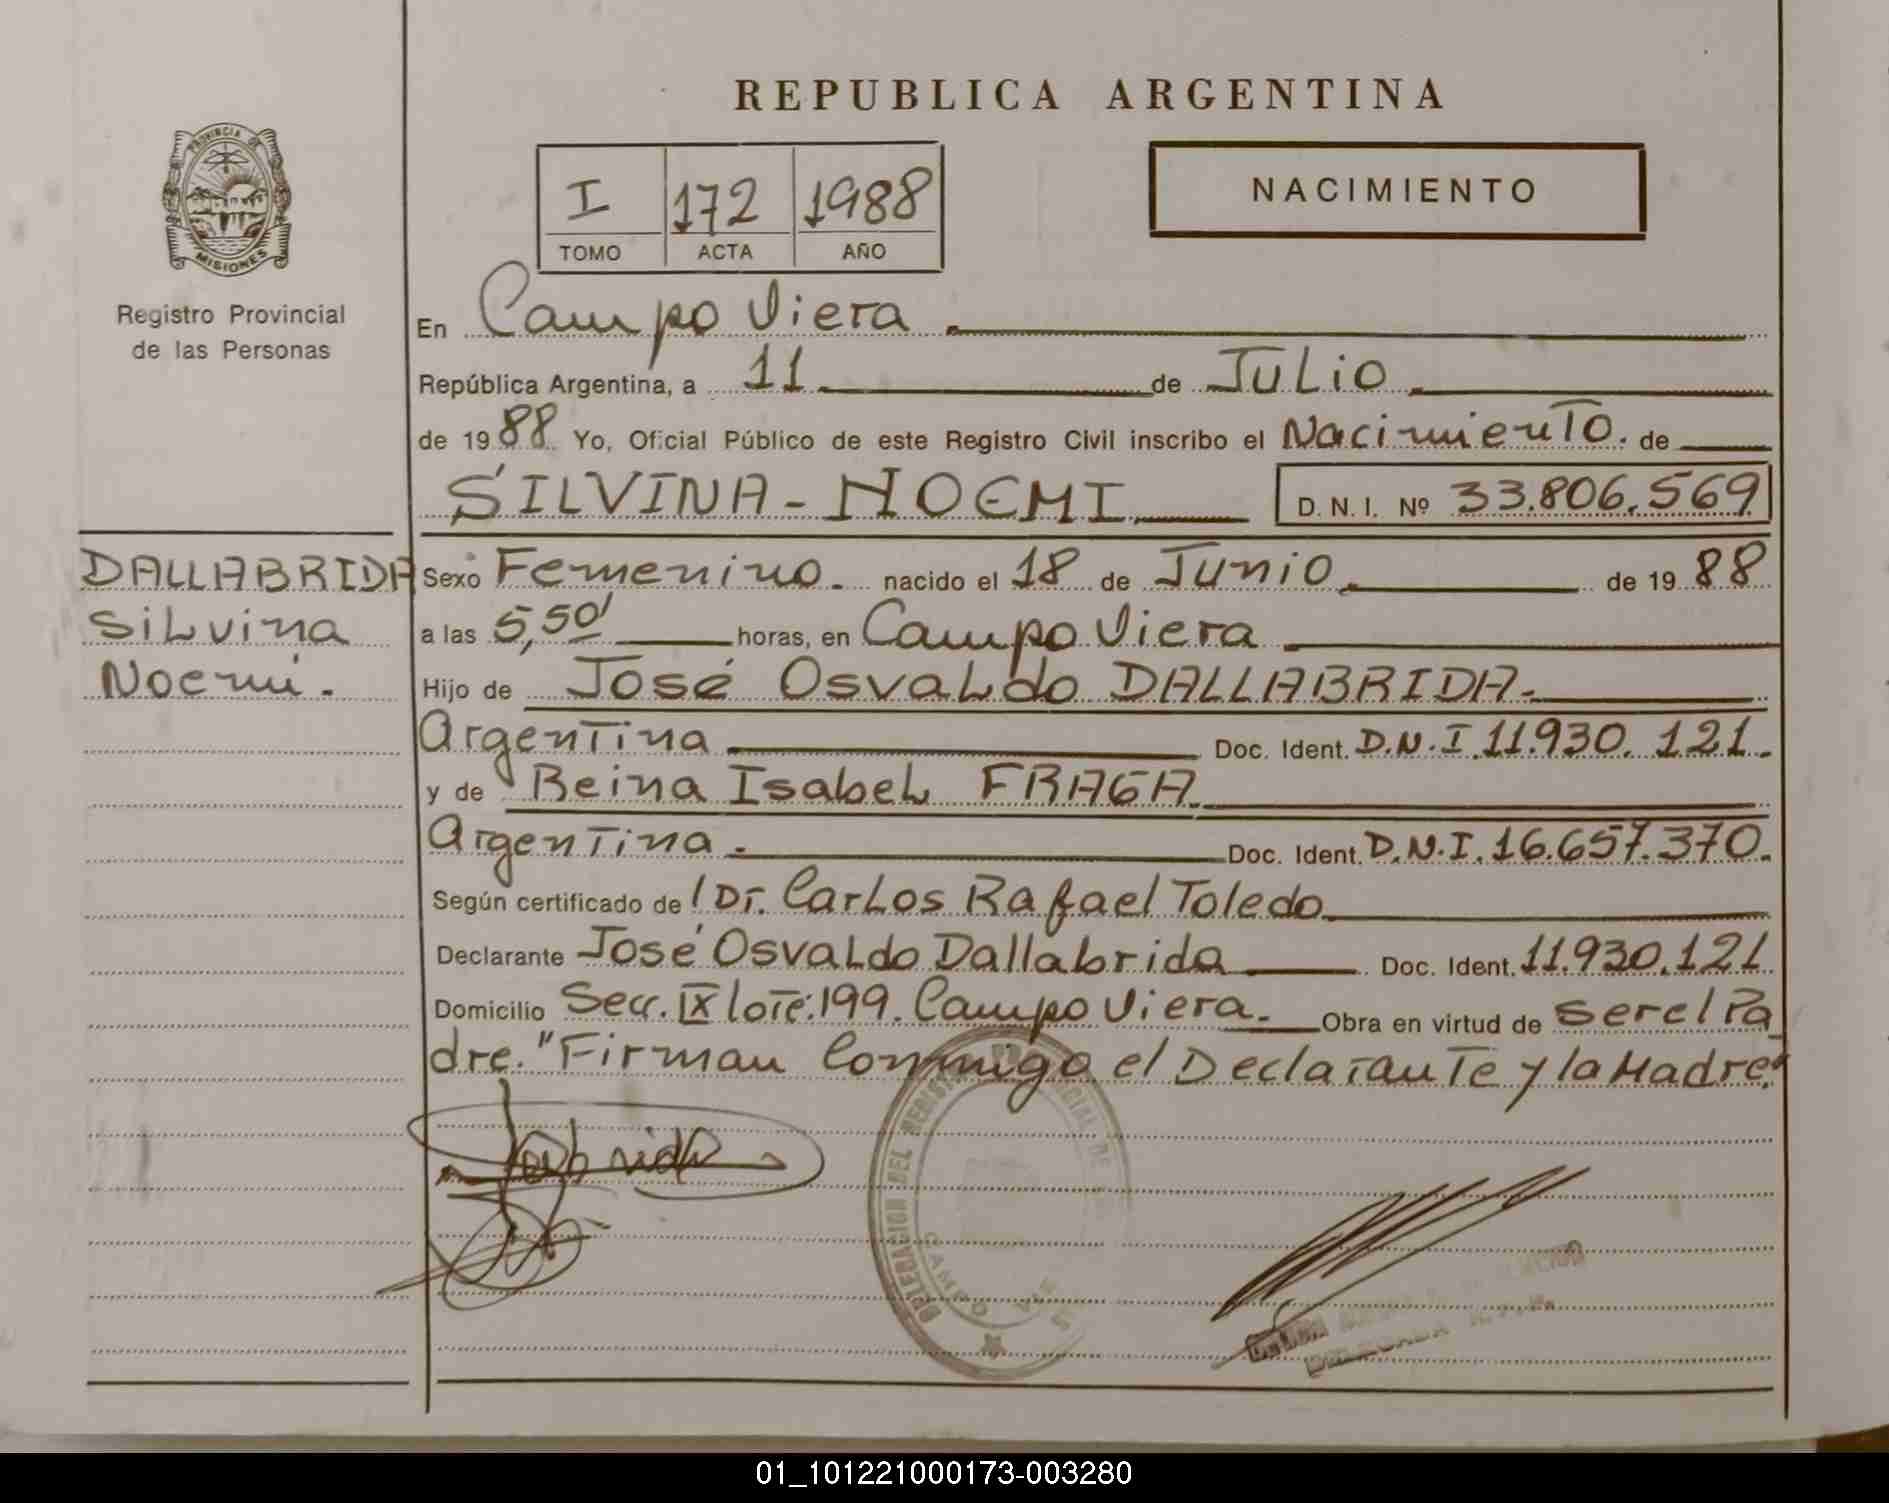 REPUBLICA ARGENTINA
PROVINCIA DE
MISIONES
Registro Provincial
de las Personas
I 172 1988
TOMO ACTA AÑO
NACIMIENTO
En Campo Viera
República Argentina, a 11 de Julio
de 1988 Yo, Oficial Público de este Registro Civil inscribo el Nacimiento. de
SILVINA - NOEMI D. N. I. Nº 33.806.569
DALLABRIDA
Silvina
Noemi.
Sexo Femenino. nacido el 18 de Junio de 1988
a las 5,50' horas, en Campo Viera
Hijo de José Osvaldo DALLABRIDA.
Argentina Doc. Ident. D.N.I. 11.930.121.
y de Reina Isabel FRAGA.
Argentina. Doc. Ident. D.N.I. 16.657.370.
Según certificado de / Dr. Carlos Rafael Toledo
Declarante José Osvaldo Dallabrida Doc. Ident. 11.930.121
Domicilio Secc. IX lote: 199. Campo Viera. Obra en virtud de ser el Pa
dre. "Firman Conmigo el Declarante y la Madre."
DELEGACION DEL REGISTRO PROVINCIAL DE
CAMPO VIERA
01_101221000173-003280